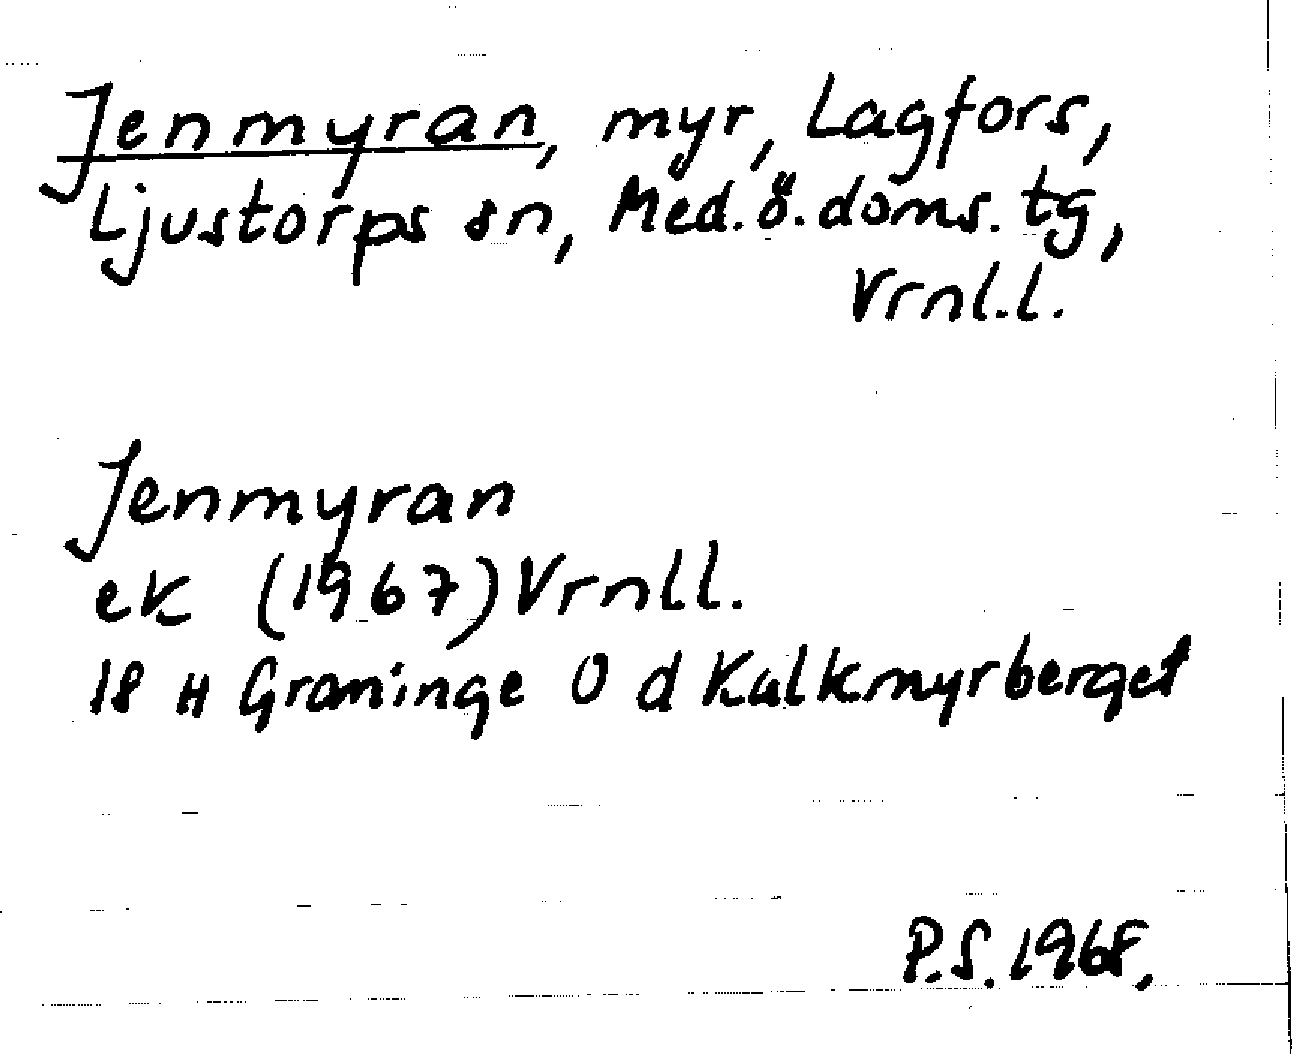 Jenmyran, myr, Lagfors,
Ljustorps sn, Med. ö. doms. tg,
Vrnl.l.
Jenmyran
ek (1967) Vrnll.
18 H Graninge O d Kalkmyrberget
P.S. 1968.